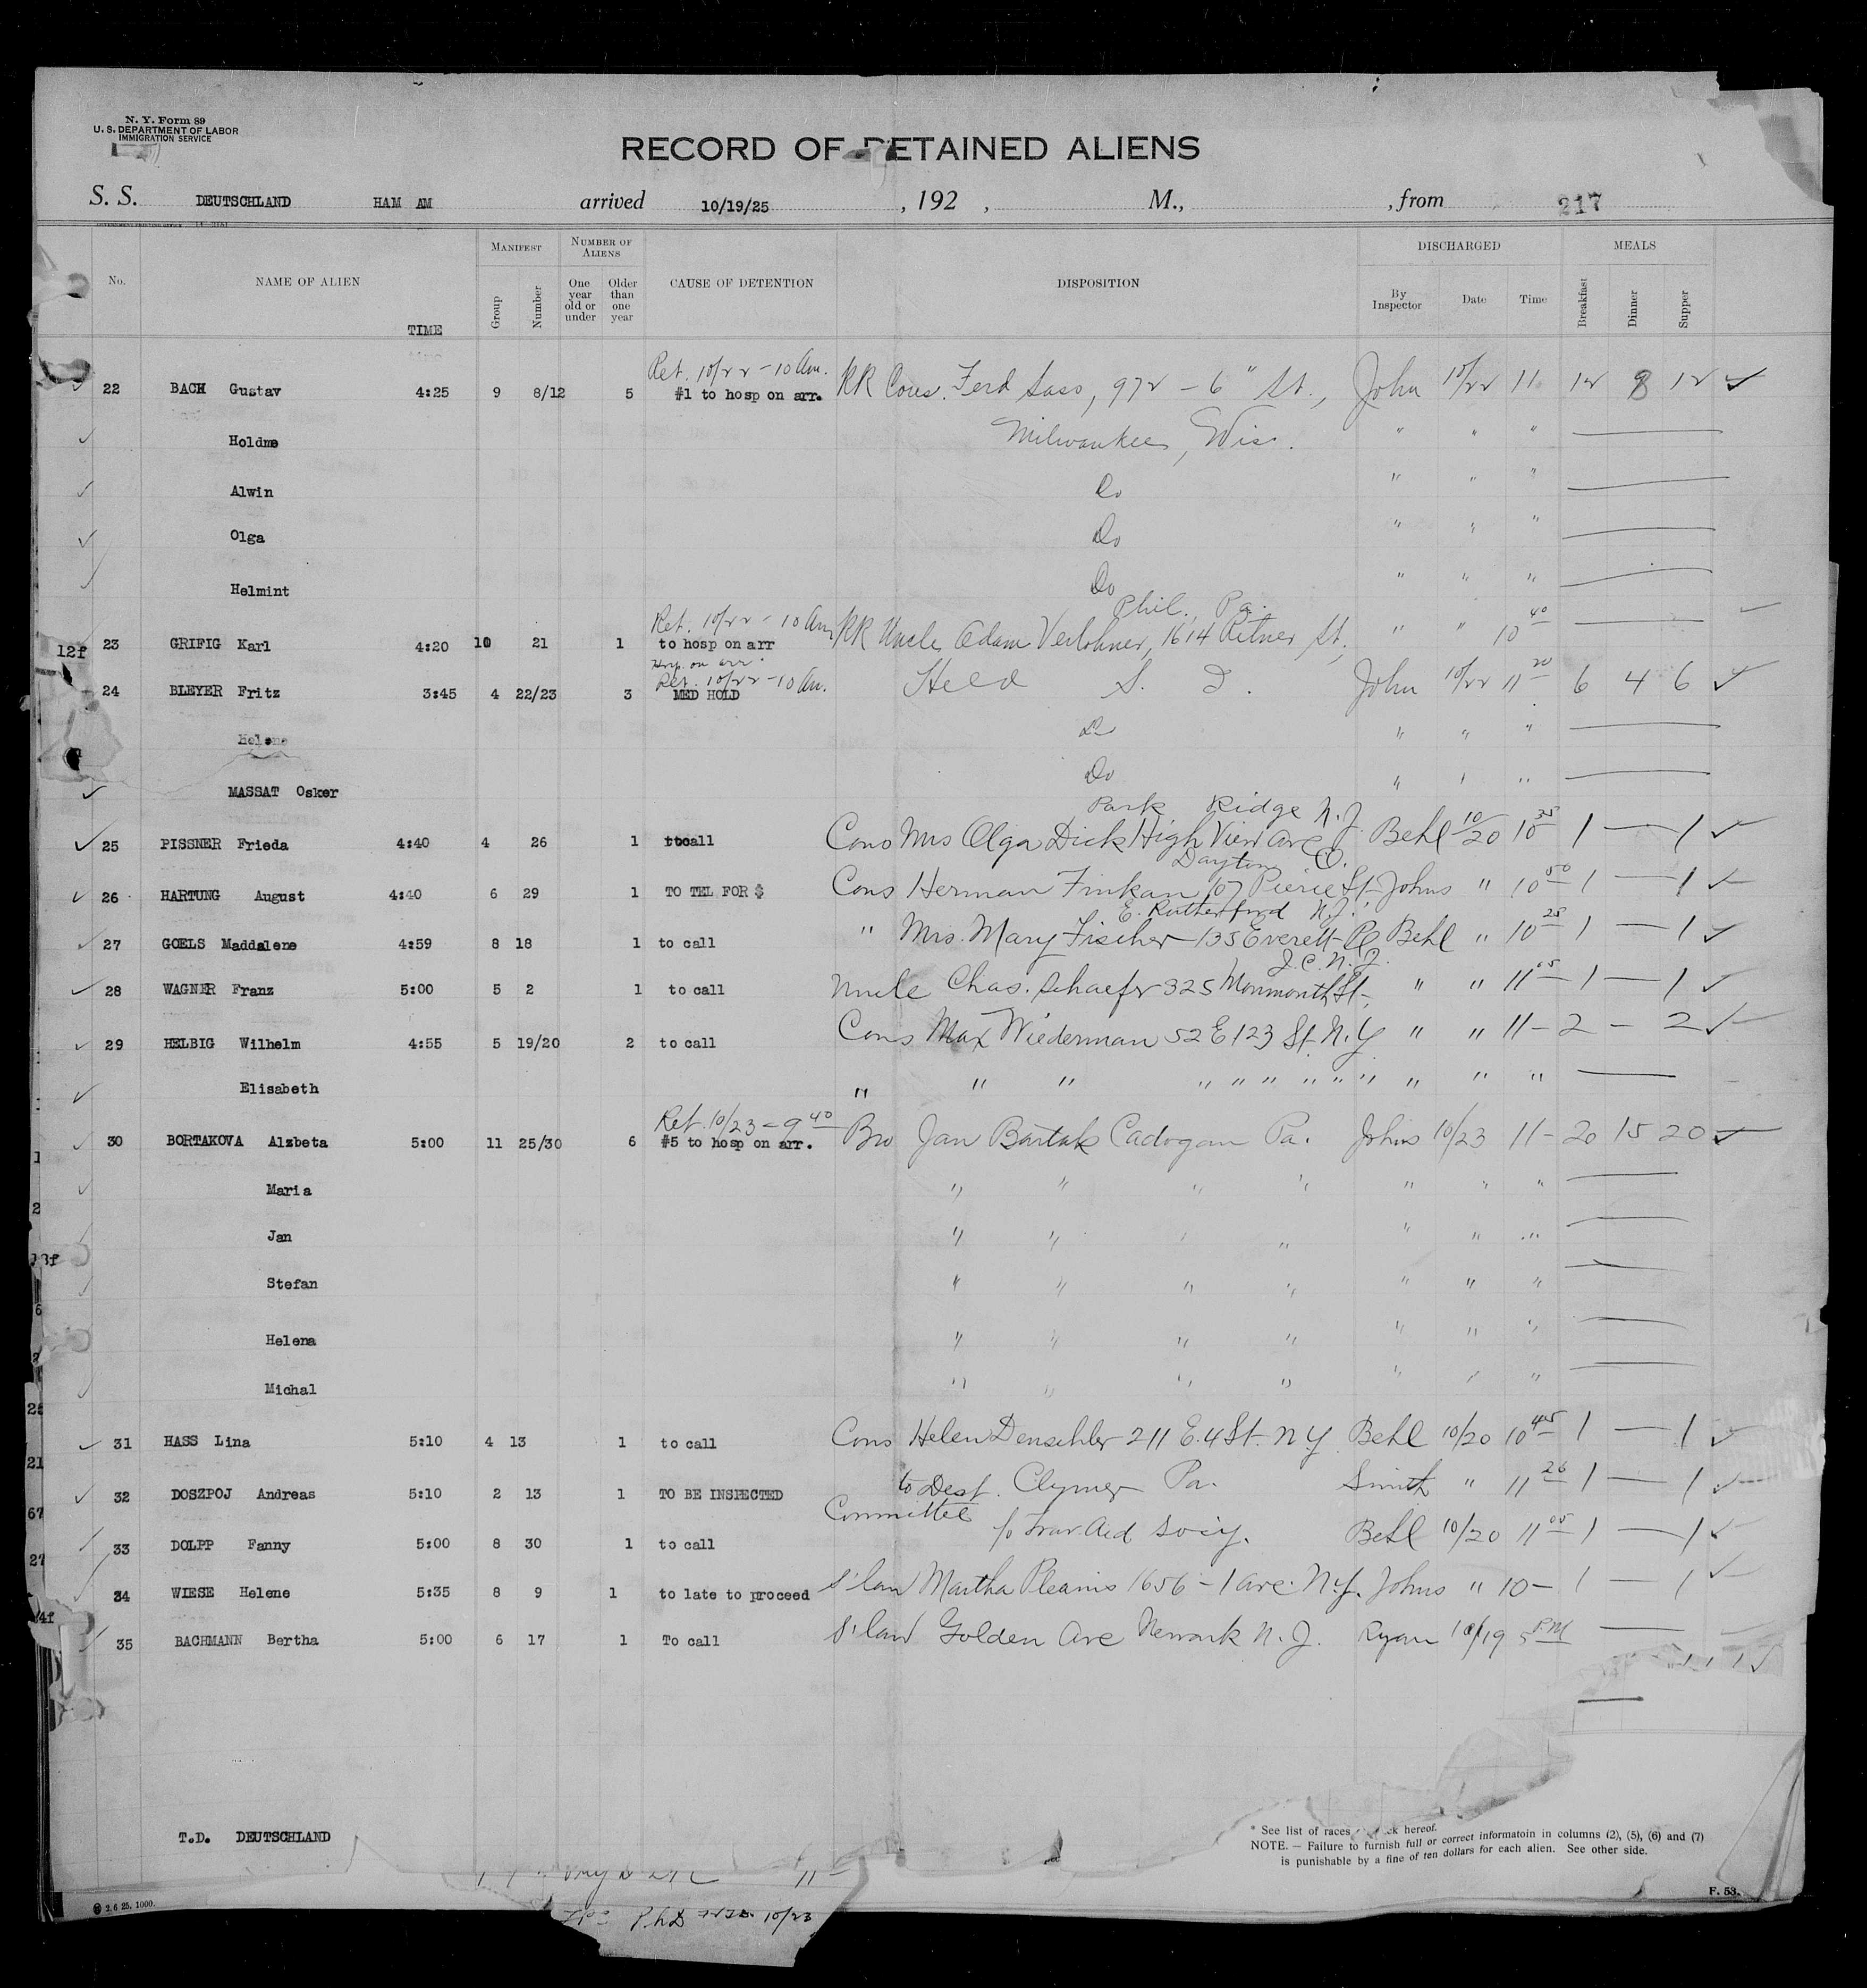 N. Y. Form 89
U. S. DEPARTMENT OF LABOR
IMMIGRATION SERVICE
RECORD OF DETAINED ALIENS
S. S. DEUTSCHLAND HAM AM arrived 10/19/25 , 192 , M., , from 217
MANIFEST NUMBER OF ALIENS DISCHARGED MEALS
No. NAME OF ALIEN TIME Group Number One year old or under Older than one year CAUSE OF DETENTION DISPOSITION By Inspector Date Time Breakfast Dinner Supper
Ret. 10/22 - 10 Am.
22 BACH Gustav 4:25 9 8/12 5 #1 to hosp on arr. RR Cous. Ferd Sass, 972 - 6" St., John 10/22 11 12 8 12 ✓
✓ Holdme Milwaukee, Wis. " " "
✓ Alwin Do " " "
✓ Olga Do " " "
✓ Helmint Do " " "
Ret. 10/22 - 10 Am Phil., Pa.
12f 23 GRIFIG Karl 4:20 10 21 1 to hosp on arr RR Uncle Adam Verlohner, 1614 Ritner St., " " 10 40
Hosp. on arr.
Ret. 10/22 - 10 Am.
24 BLEYER Fritz 3:45 4 22/23 3 MED HOLD Held S. I. John 10/22 11 20 6 4 6 ✓
Helene Do " " "
✓ MASSAT Osker Do " " "
Park Ridge N.J.
✓ 25 PISSNER Frieda 4:40 4 26 1 to call Cous Mrs Olga Dick High View Ave Behl 10/20 10 35 1 — 1 ✓
Dayton O.
✓ 26 HARTUNG August 4:40 6 29 1 TO TEL FOR $ Cous Herman Finkan 107 Pierce St. Johns " 10 50 1 — 1 ✓
E. Rutherford N.J.
✓ 27 GOELS Maddalene 4:59 8 18 1 to call " Mrs. Mary Fischer - 135 Everett Pl Behl " 10 25 1 — 1 ✓
J.C. N.J.
✓ 28 WAGNER Franz 5:00 5 2 1 to call Uncle Chas. Schaefer 325 Monmouth St. " " 11 05 1 — 1 ✓
✓ 29 HELBIG Wilhelm 4:55 5 19/20 2 to call Cous Max Wiederman 52 E 123 St. N.Y " " 11 - 2 — 2 ✓
✓ Elisabeth " " " " " " " " " " " "
Ret. 10/23 - 9 40
✓ 30 BORTAKOVA Alzbeta 5:00 11 25/30 6 #5 to hosp on arr. Bro Jan Bartak Cadogan Pa. Johns 10/23 11 - 20 15 20 ✓
✓ Maria " " " " " " "
Jan " " " " " " "
Stefan " " " " " " "
Helena " " " " " " "
Michal " " " " " " "
✓ 31 HASS Lina 5:10 4 13 1 to call Cous Helen Denschler 211 E. 4 St. N Y Behl 10/20 10 45 1 — 1 ✓
✓ 32 DOSZPOJ Andreas 5:10 2 13 1 TO BE INSPECTED to Dest. Clymer Pa. Smith " 11 26 1 — 1 ✓
Committee
33 DOLPP Fanny 5:00 8 30 1 to call Trav Aid Socy. Behl 10/20 11 05 1 — 1 ✓
34 WIESE Helene 5:35 8 9 1 to late to proceed S'law Martha 1656 - 1 ave. N.Y. Johns " 10 - 1 — 1 ✓
35 BACHMANN Bertha 5:00 6 17 1 To call S'law Golden Ave Newark N.J. Ryan 10/19 5 PM
T.D. DEUTSCHLAND
* See list of races hereof.
NOTE. — Failure to furnish full or correct informatoin in columns (2), (5), (6) and (7)
is punishable by a fine of ten dollars for each alien. See other side.
F. 53.
2 6 25. 1000.
10/23